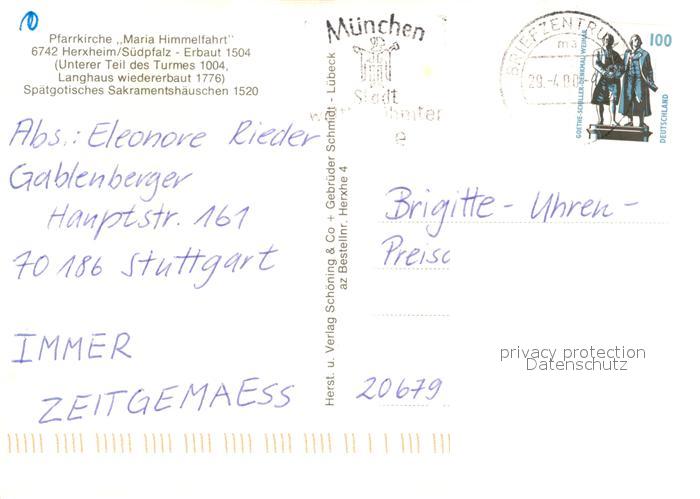 Pfarrkirche „Maria Himmelfahrt"
6742 Herxheim/Südpfalz - Erbaut 1504
(Unterer Teil des Turmes 1004,
Langhaus wiedererbaut 1776)
Spätgotisches Sakramentshäuschen 1520
Abs.: Eleonore Rieder
Gablenberger
Hauptstr. 161
70186 Stuttgart
IMMER
ZEITGEMAESS
Herst. u. Verlag Schöning & Co + Gebrüder Schmidt - Lübeck
az Bestellnr. Herxhe 4
München
Stadt
BRIEFZENTRUM
29.-4.00
100
GOETHE-SCHILLER-DENKMAL WEIMAR
DEUTSCHLAND
Brigitte-Uhren-
Preisc
20679
privacy protection
Datenschutz